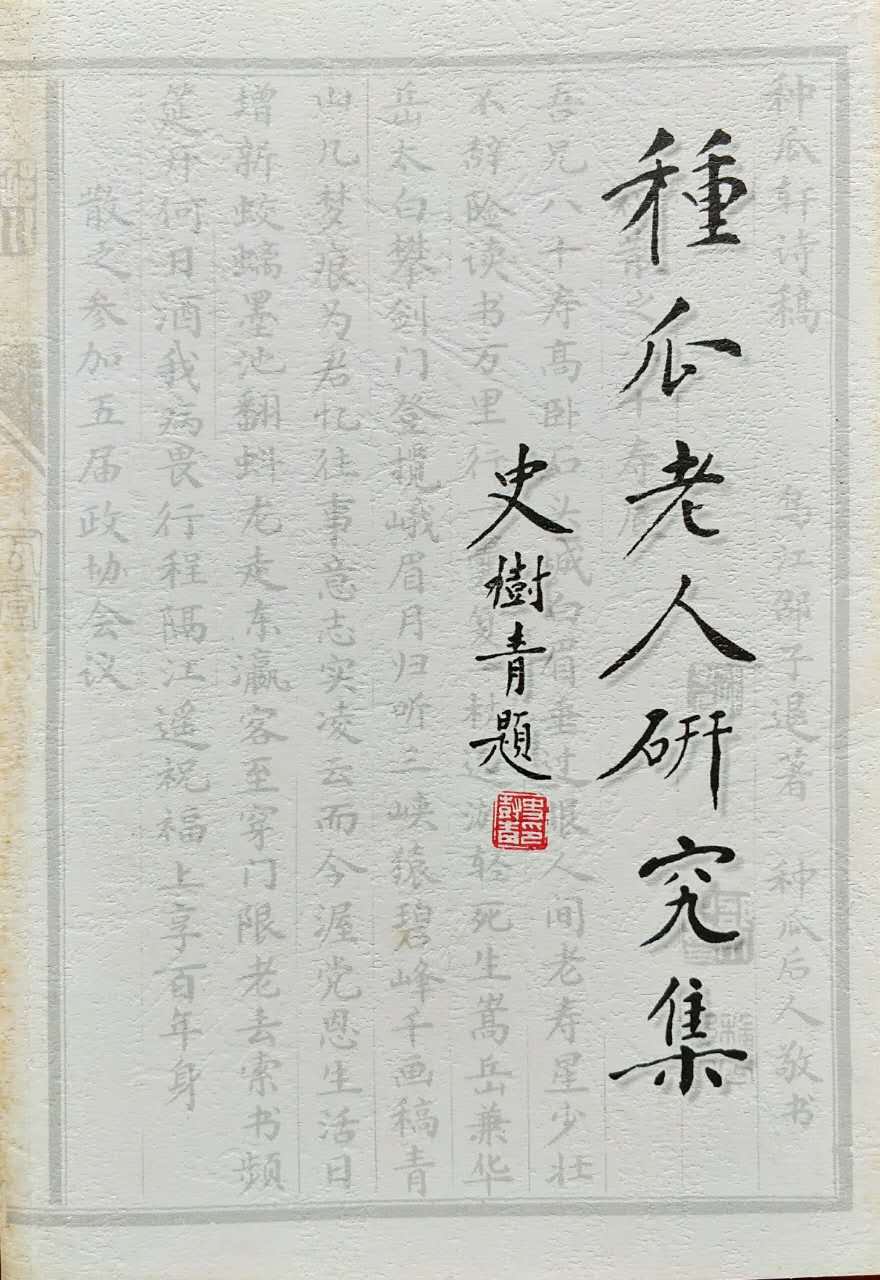 種瓜老人研究集
史樹青題
种瓜轩诗稿 乌江邵子退著 种瓜后人敬书
吾兄八十寿高卧石头城白眉垂过眼人间老寿星少壮
不辞险读书万里行 游轻死生嵩岳兼华
岳太白攀剑门登揽峨眉月归听三峡猿碧峰千画稿青
山几梦痕为君忆往事意志实凌云而今渥党恩生活日
增新蛟螭墨池翻蚪龙走东瀛客至穿门限老去索书频
筵开何日酒我病畏行程隔江遥祝福上享百年身
散之参加五届政协会议